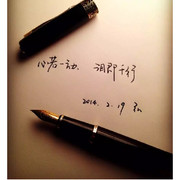 心若一动、泪即千行
2014. 2. 19